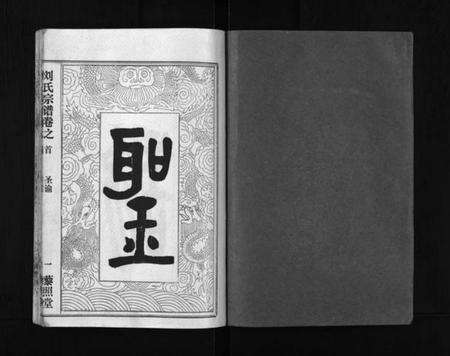 刘氏宗谱卷之首
圣谕
一
藜照堂
聖